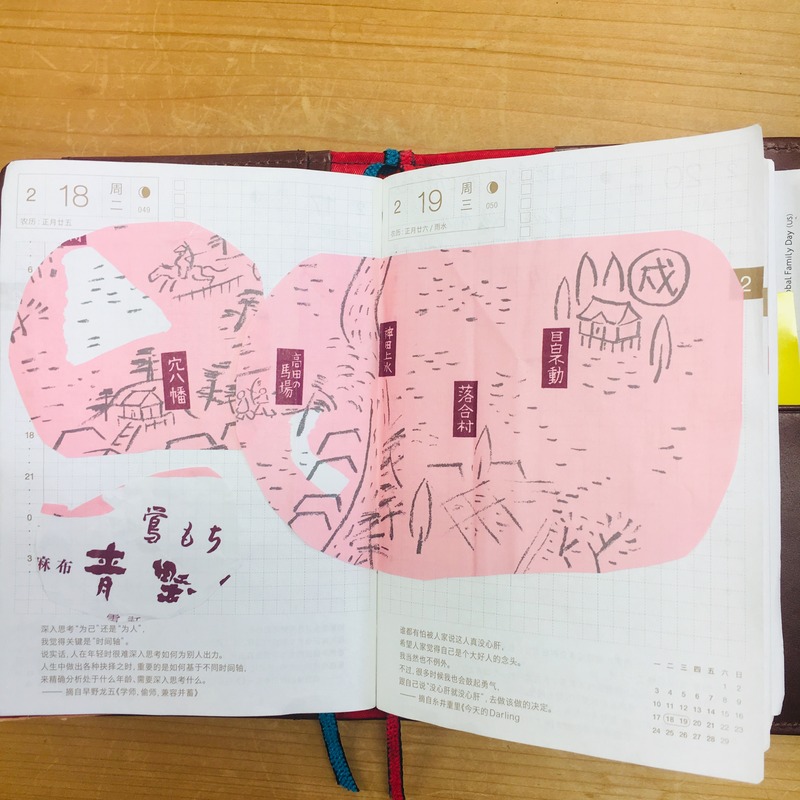 2 18 周二
049
农历：正月廿五
6
18
21
0
3
穴八幡
高田の馬場
鶯もち
麻布
青野
深入思考“为己”还是“为人”，
我觉得关键是“时间轴”。
说实话，人在年轻时很难深入思考如何为别人出力。
人生中做出各种抉择之时，重要的是如何基于不同时间轴，
来精确分析处于什么年龄、需要深入思考什么。
—— 摘自早野龙五《学师，偷师，兼容并蓄》
2 19 周三
050
农历：正月廿六 / 雨水
2
神田上水
落合村
目白不動
戌
谁都有怕被人家说这人真没心肝，
希望人家觉得自己是个大好人的念头。
我当然也不例外。
不过，很多时候我也会鼓起勇气，
跟自己说“没心肝就没心肝”，去做该做的决定。
—— 摘自糸井重里《今天的Darling
一 二 三 四 五 六 日
1 2
3 4 5 6 7 8 9
10 11 12 13 14 15 16
17 18 19 20 21 22 23
24 25 26 27 28 29
bal Family Day (US)